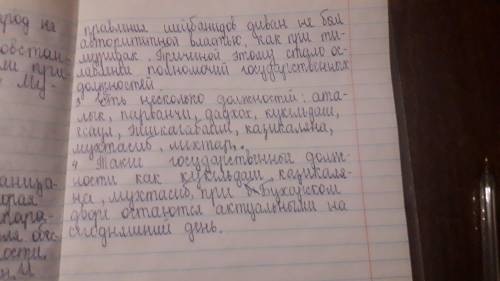 род на
правления шейбанидов диван не был
авторитетной властью, как при ти-
муридах. Причиной этому стало ос-
лавления полномочий государственных
должностей.
3 Есть несколько должностей: ата-
лык, парванчи, дадхох, кукельдаш,
есаул, эшикагабаши, казикаляна,
мухтасиб, мехтар.
4 Такие государственные долж-
ности как кукельдаш, казикаля-
на, мухтасиб, при Бухарском
дворе остаются актуальными на
сегодняшний день.